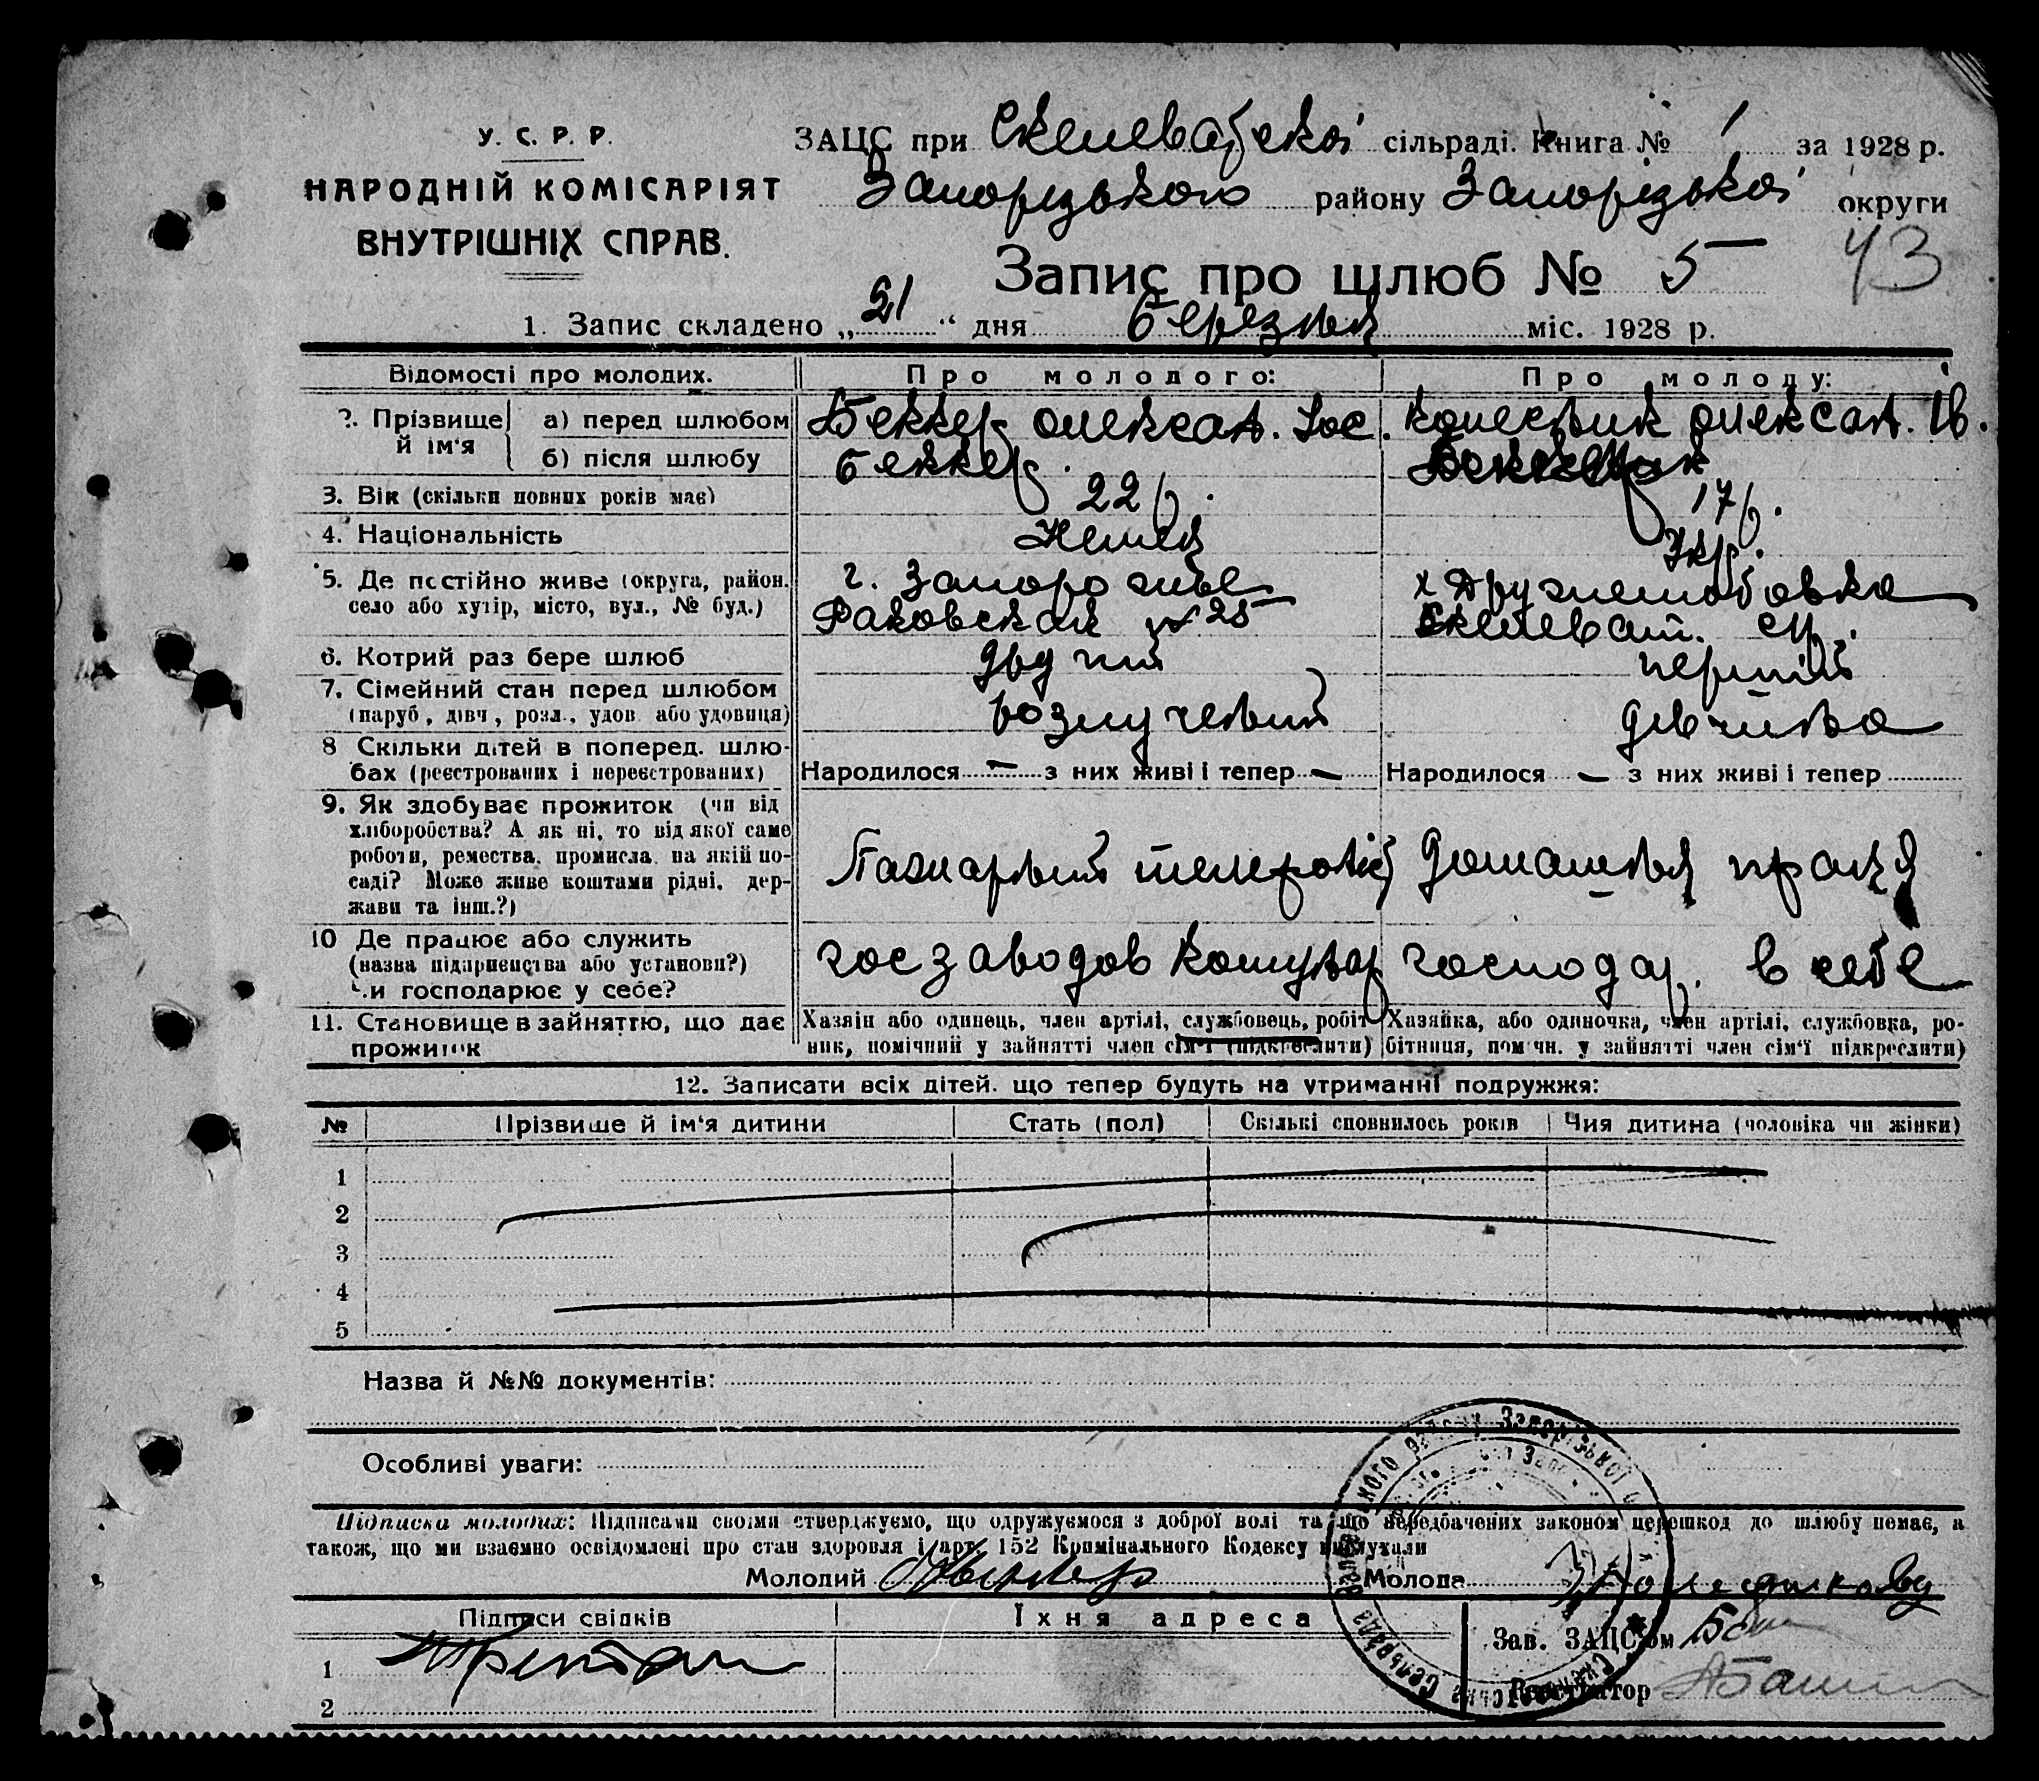 У. С. Р. Р.
НАРОДНІЙ КОМІСАРІЯТ
ВНУТРІШНІХ СПРАВ.
ЗАЦС при Скелеватской сільраді. Книга № 1 за 1928 р.
Запорізького району Запорізької округи
Запис про шлюб № 5
43
1. Запис складено „21“ дня Березня міс. 1928 р.
Відомості про молодих.
Про молодого:
Про молоду:
2. Прізвище й ім'я
а) перед шлюбом
Беккер олексан. Іос.
олексан. Ів.
б) після шлюбу
Беккер
3. Вік (скільки повних років має)
22 р.
17 р.
4. Національність
Немец
Укр.
5. Де постійно живе (округа, район.
село або хутір, місто, вул., № буд.)
г. Запорожье
Раковская № 25
х
Скелеват. ср.
6. Котрий раз бере шлюб
другий
перший
7. Сімейний стан перед шлюбом
(паруб., дівч., розл., удов. або удовиця)
дівчина
8 Скільки дітей в поперед. шлю-
бах (реєстрованих і нереєстрованих)
Народилося — з них живі і тепер —
Народилося — з них живі і тепер
9. Як здобуває прожиток (чи від
хліборобства? А як ні, то від якої саме
роботи, ремества, промисла, на якій по-
саді? Може живе коштами рідні, дер-
жави та інш.?)
домашня праця
10 Де працює або служить
(назва підприємства або установи?)
Чи господарює у себе?
госзаводов Комунар
господар. в себе
11. Становище в зайняттю, що дає
прожиток
Хазяїн або одинець, член артілі, службовець, робіт-
ник, помічний у зайнятті член сім'ї (підкреслити)
Хазяйка, або одиночка, член артілі, службовка, ро-
бітниця, помічн. у зайнятті член сім'ї підкреслити)
12. Записати всіх дітей, що тепер будуть на утриманні подружжя:
№
Прізвище й ім'я дитини
Стать (пол)
Скількі сповнилось років
Чия дитина (чоловіка чи жінки)
1
2
3
4
5
Назва й №№ документів:
Особливі уваги:
Підписка молодих: Підписами своїми стверджуємо, що одружуємося з доброї волі та що передбачених законом перешкод до шлюбу немає, а
також, що ми взаємно освідомлені про стан здоровля і арт. 152 Кримінального Кодексу вислухали
Молодий
Молода
Підписи свідків
Їхня адреса
Зав. ЗАЦС'ом
1
Реєстратор
2